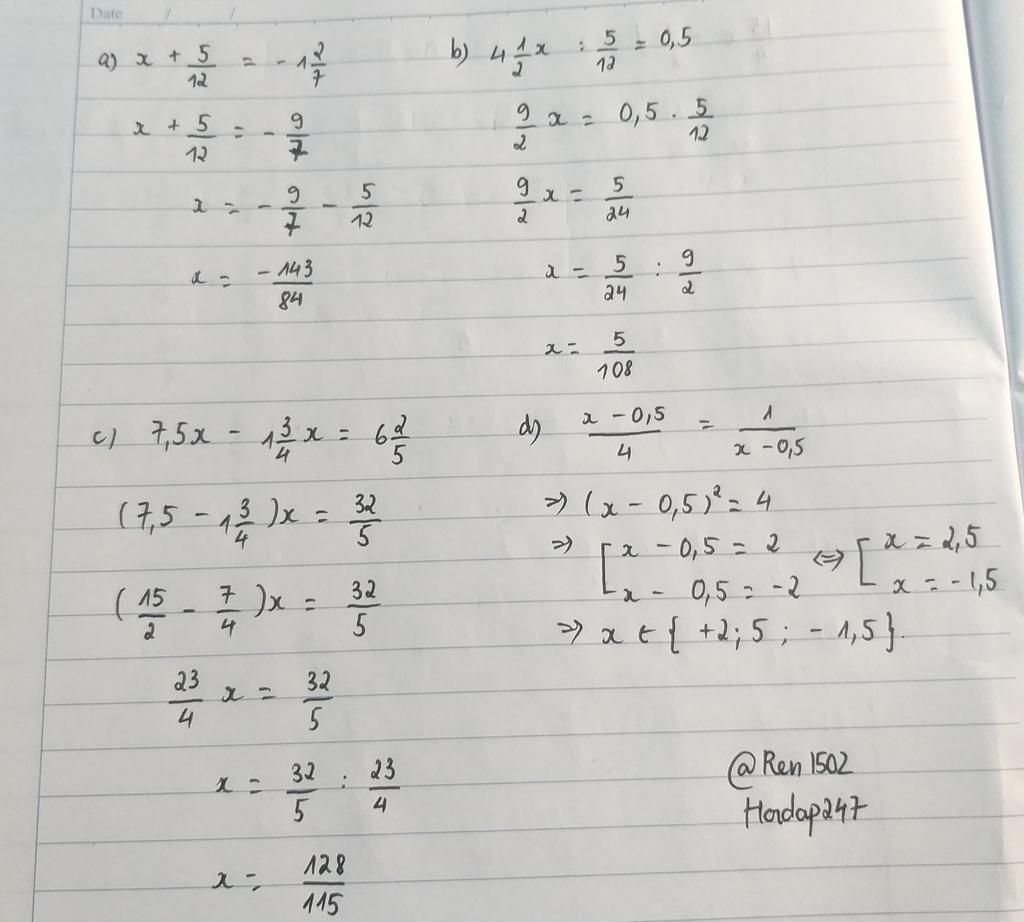 Date / /
a) x + 5/12 = -1 2/7
x + 5/12 = - 9/7
x = - 9/7 - 5/12
x = -143/84
b) 4 1/2 x : 5/12 = 0,5
9/2 x = 0,5 . 5/12
9/2 x = 5/24
x = 5/24 : 9/2
x = 5/108
c) 7,5x - 1 3/4 x = 6 2/5
(7,5 - 1 3/4)x = 32/5
(15/2 - 7/4)x = 32/5
23/4 x = 32/5
x = 32/5 : 23/4
x = 128/115
d) (x - 0,5)/4 = 1/(x - 0,5)
=> (x - 0,5)² = 4
=> [ x - 0,5 = 2 <=> [ x = 2,5
x - 0,5 = -2 x = -1,5
=> x ∈ { +2;5 ; -1,5}.
@Ren1502
Hoidap247